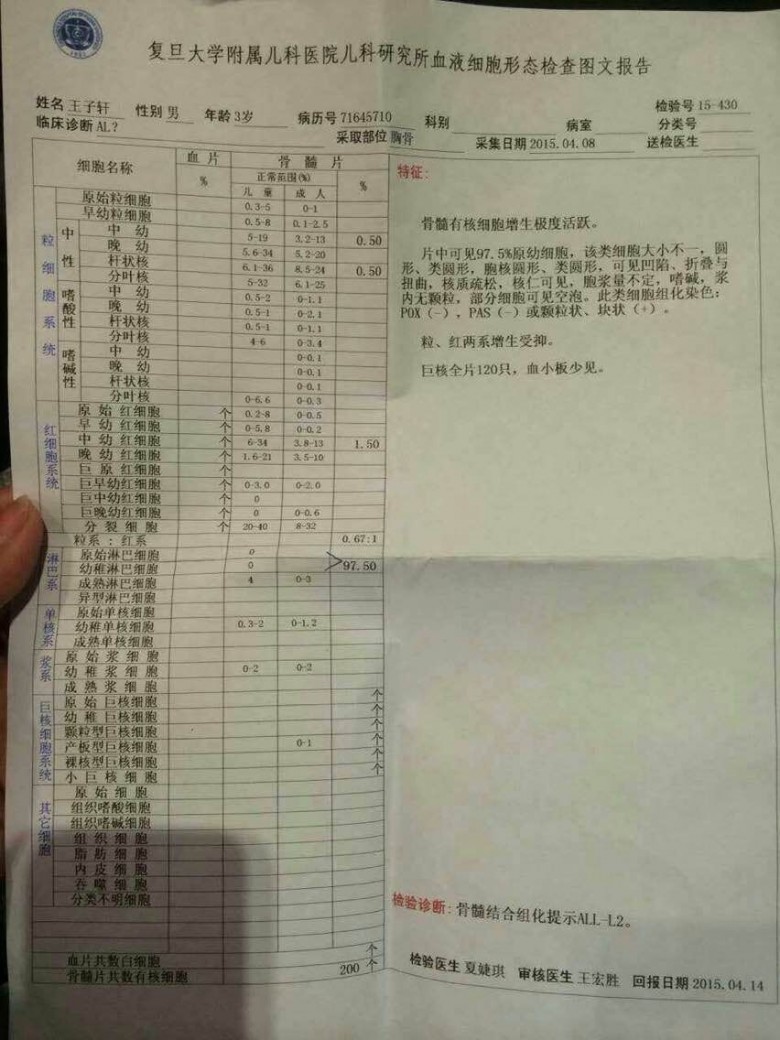 复旦大学附属儿科医院儿科研究所血液细胞形态检查图文报告
姓名 王子轩 性别 男 年龄 3岁 病历号 71645710 科别 检验号 15-430
临床诊断 AL? 采取部位 胸骨 采集日期 2015.04.08 病室 分类号
送检医生
细胞名称 血片 % 骨髓片
正常范围(%) %
儿童 成人
粒细胞系统
原始粒细胞 0.3-5 0-1
早幼粒细胞 0.5-8 0.1-2.5
中性
中幼 5-19 3.2-13 0.50
晚幼 5.6-34 5.2-20
杆状核 6.1-36 8.5-24 0.50
分叶核 5-32 6.1-25
嗜酸性
中幼 0.5-2 0-1.1
晚幼 0.5-1 0-2.1
杆状核 0.5-1 0-1.1
分叶核 4-6 0-3.4
嗜碱性
中幼 0-0.1
晚幼 0-0.1
杆状核 0-0.1
分叶核 0-6.6 0-0.3
红细胞系统
原始红细胞 个 0.2-8 0-0.5
早幼红细胞 个 0-5.8 0-0.2
中幼红细胞 个 6-34 3.8-13 1.50
晚幼红细胞 个 1.6-21 3.5-10
巨原红细胞 个
巨早幼红细胞 个 0-3.0 0-2.0
巨中幼红细胞 个 0
巨晚幼红细胞 个 0 0-0.6
分裂细胞 个 20-40 8-32
粒系:红系 0.67:1
淋巴系
原始淋巴细胞 0
幼稚淋巴细胞 0 >97.50
成熟淋巴细胞 4 0-3
异型淋巴细胞
单核系
原始单核细胞
幼稚单核细胞 0.3-2 0-1.2
成熟单核细胞
浆系
原始浆细胞
幼稚浆细胞 0-2 0-2
成熟浆细胞
巨核细胞系统
原始巨核细胞 个
幼稚巨核细胞 个
颗粒型巨核细胞 个
产板型巨核细胞 0-1 个
裸核型巨核细胞 个
小巨核细胞 个
其它细胞
原始细胞
组织嗜酸细胞
组织嗜碱细胞
组织细胞
脂肪细胞
内皮细胞
吞噬细胞
分类不明细胞
血片共数白细胞 个
骨髓片共数有核细胞 200 个
特征:
骨髓有核细胞增生极度活跃。
片中可见97.5%原幼细胞,该类细胞大小不一,圆
形、类圆形,胞核圆形、类圆形,可见凹陷、折叠与
扭曲,核质疏松,核仁可见,胞浆量不定,嗜碱,浆
内无颗粒,部分细胞可见空泡。此类细胞组化染色:
POX(-),PAS(-)或颗粒状、块状(+)。
粒、红两系增生受抑。
巨核全片120只,血小板少见。
检验诊断:骨髓结合组化提示ALL-L2。
检验医生 夏婕琪 审核医生 王宏胜 回报日期 2015.04.14